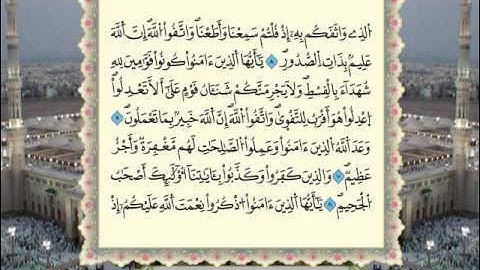 اَلذِے وَاثَقَكُم بِهِۦٓ إِذْ قُلْتُمْ سَمِعْنَا وَأَطَعْنَاۖ وَاتَّقُوا۟ اُللَّهَۖ إِنَّ اَللَّهَ
عَلِيمُۢ بِذَاتِ اِلصُّدُورِۖ ٨ يَٰٓأَيُّهَا اَلذِينَ ءَامَنُوا۟ كُونُوا۟ قَوَّٰمِينَ لِلهِ
شُهَدَآءَ بِالْقِسْطِۖ وَلَا يَجْرِمَنَّكُمْ شَنَـَٔانُ قَوْمٍ عَلَىٰٓ أَلَّا تَعْدِلُوا۟ۖ
اُ۪عْدِلُوا۟ هُوَ أَقْرَبُ لِلتَّقْو۪ىٰۖ وَاتَّقُوا۟ اُللَّهَۖ إِنَّ اَللَّهَ خَبِيرُۢ بِمَا تَعْمَلُونَۖ ٩
وَعَدَ اَللَّهُ اُلذِينَ ءَامَنُوا۟ وَعَمِلُوا۟ اُلصَّٰلِحَٰتِ لَهُم مَّغْفِرَةٞ وَأَجْرٌ
عَظِيمٞۖ وَالذِينَ كَفَرُوا۟ وَكَذَّبُوا۟ بِـَٔايَٰتِنَآ أُوْلَٰٓئِكَ أَصْحَٰبُ
اُلْجَحِيمِۖ يَٰٓأَيُّهَا اَلذِينَ ءَامَنُوا۟ اُ۟ذْكُرُوا۟ نِعْمَتَ اَللَّهِ عَلَيْكُمُۥٓ إِذْ